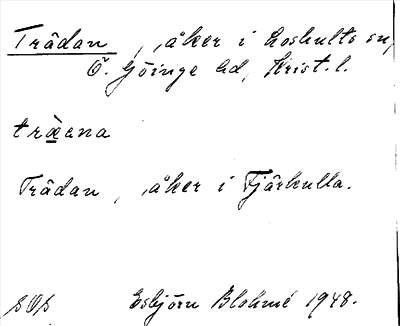 Trädan, åker i Loshults sn,
Ö. Göinge hd, Krist. l.
træ̀ena
Trädan, åker i Fjärhulla.
SOS Esbjörn Blohmé 1948.